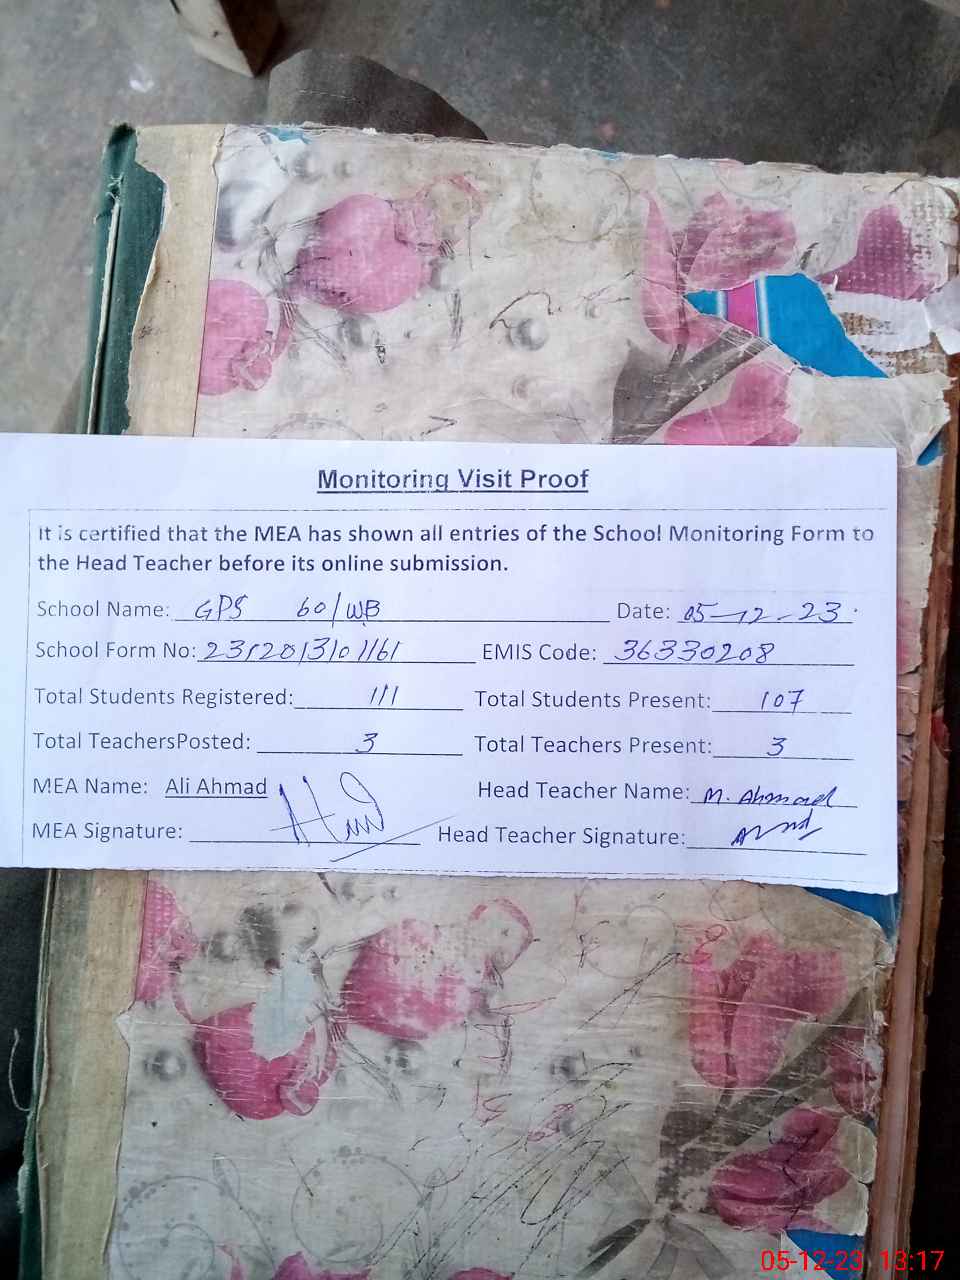 Monitoring Visit Proof
It is certified that the MEA has shown all entries of the School Monitoring Form to
the Head Teacher before its online submission.
School Name: GPS 60/WB Date: 05-12-23
School Form No: EMIS Code: 36330208
Total Students Registered: 111 Total Students Present: 107
Total TeachersPosted: 3 Total Teachers Present: 3
MEA Name: Ali Ahmad Head Teacher Name: M. Ahmad
MEA Signature: Head Teacher Signature:
05-12-23 13:17